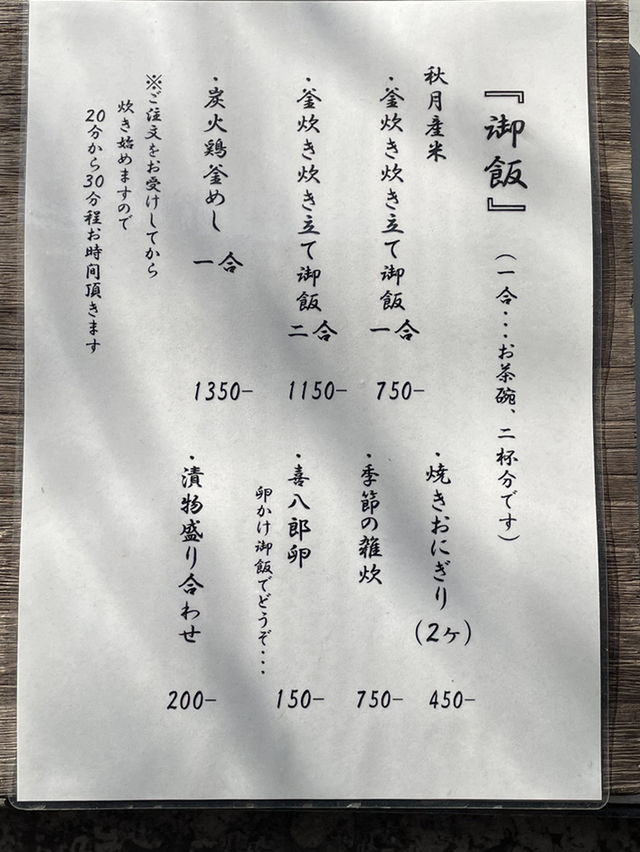 『御飯』
（一合・・・お茶碗、二杯分です）
秋月産米
・釜炊き炊き立て御飯 一合
750-
・釜炊き炊き立て御飯 二合
1150-
・炭火鶏釜めし 一合
1350-
※ご注文をお受けしてから
炊き始めますので
20分から30分程お時間頂きます
・焼きおにぎり（2ヶ）
450-
・季節の雑炊
750-
・喜八郎卵
卵かけ御飯でどうぞ・・・
150-
・漬物盛り合わせ
200-